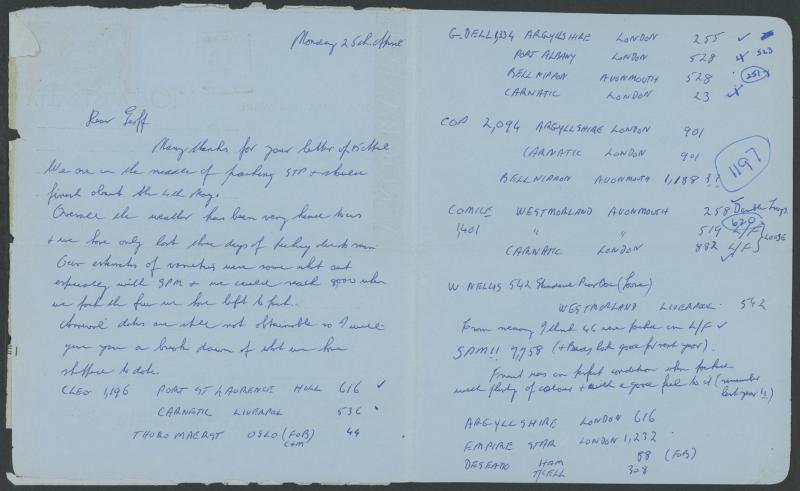 Monday 25th April
Dear Geoff
Many thanks for your letter of 15 April
We are in the middle of packing STP + should
finish about the 4th May.
Overall the weather has been very kind to us
+ we have only lost three days of picking due to rain
Our estimates of varieties were some what out
especially with SPM + we could reach 9000 when
we pack the few we have left to pack.
Arrival dates are still not obtainable so I will
give you a break down of what we have
shipped to date.
CLEO 1,196 PORT ST LAURENCE HULL 616 ✓
CARNATIC LIVERPOOL 536
THURO MAERSK OSLO (FOB) 44
C+M
G. DELL 1,334 ARGYLLSHIRE LONDON 255 ✓
PORT ALBANY LONDON 528 523
BELL NIPPON AVONMOUTH 528 251
CARNATIC LONDON 23
COP 2,094 ARGYLLSHIRE LONDON 901
CARNATIC LONDON 901
BELL NIPPON AVONMOUTH 1,188 ??
1197
COMICE WESTMORLAND AVONMOUTH 258 Double Trays
1,401 " " 519 629 L/F
CARNATIC LONDON 882 L/F } LOOSE
W. NELLIS 542 (Loose)
WESTMORLAND LIVERPOOL 542
From memory I think 46 were packed in L/F ✓
SPM!! 7,958 (+ Beans look good for next year).
Fruit was in perfect condition when packed
with plenty of colour + with a good feel to it (remember
last year!!)
ARGYLLSHIRE LONDON 616
EMPIRE STAR LONDON 1,232
DESEADO HAM 88 (FOB)
T/CELL 308